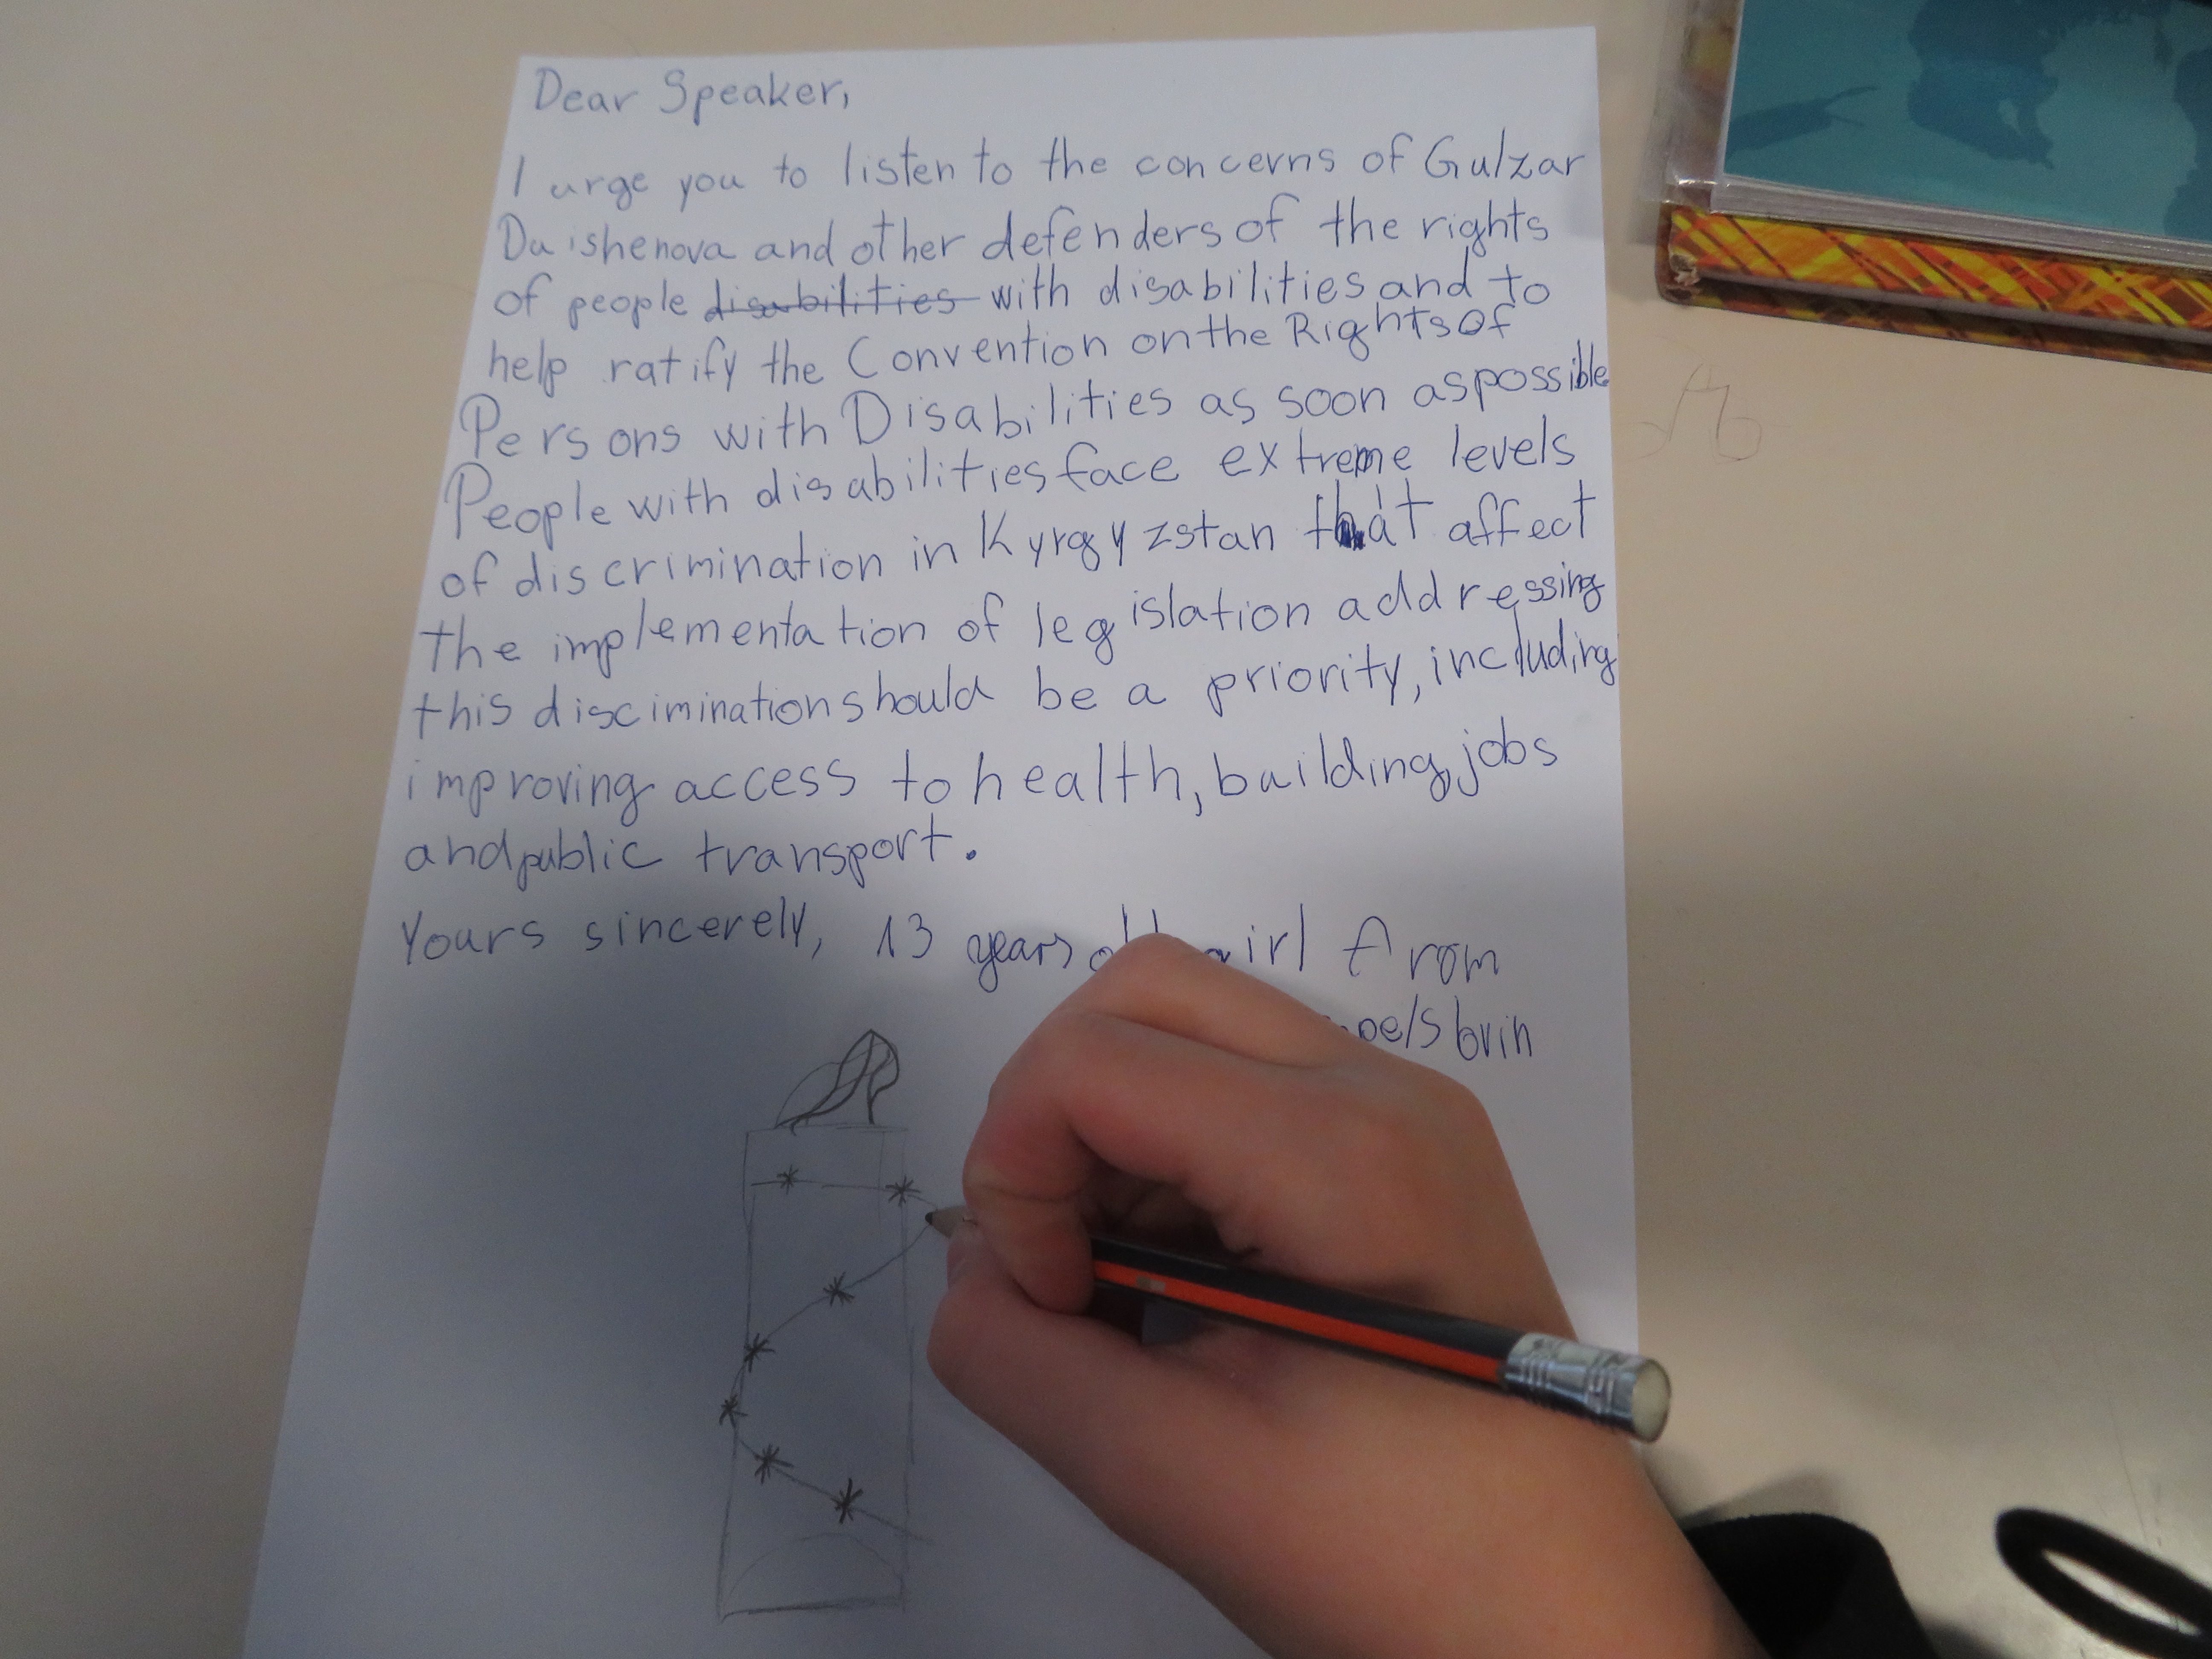 Dear Speaker,
I urge you to listen to the concerns of Gulzar
Duishenova and other defenders of the rights
of people disabilities with disabilities and to
help ratify the Convention on the Rights Of
Persons with Disabilities as soon as possible
People with disabilities face extreme levels
of discrimination in Kyrgyzstan that affect
the implementation of legislation addressing
this discimination should be a priority, including
improving access to health, building, jobs
and public transport.
Yours sincerely, 13 years old girl from